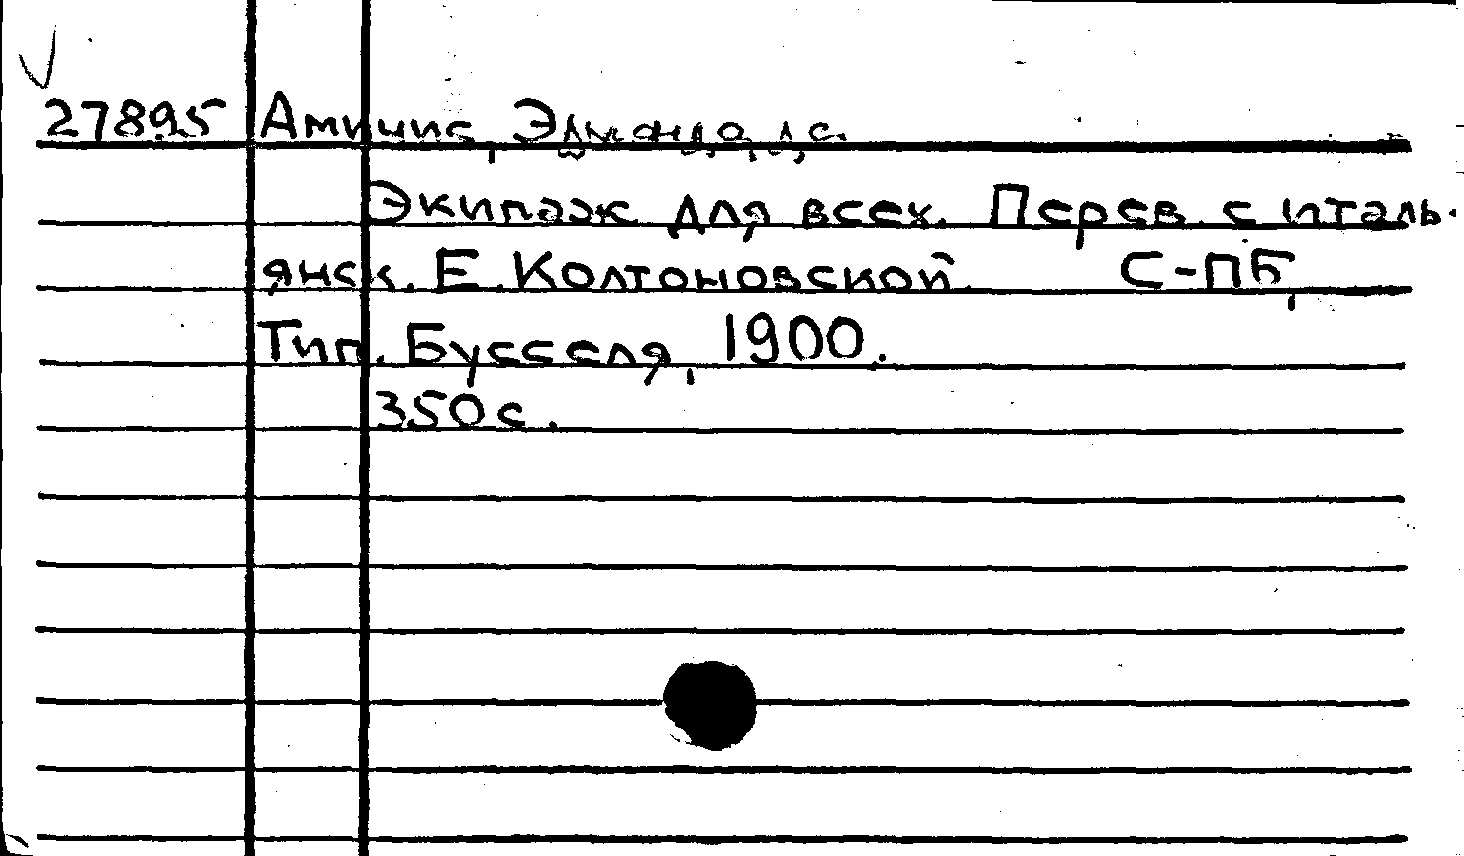 27895 Амичис, Эдмондо, де.
Экипаж для всех. Перев. с италь-
янск. Е. Колтоновской. С-ПБ,
Тип. Бусселя, 1900.
350 с.